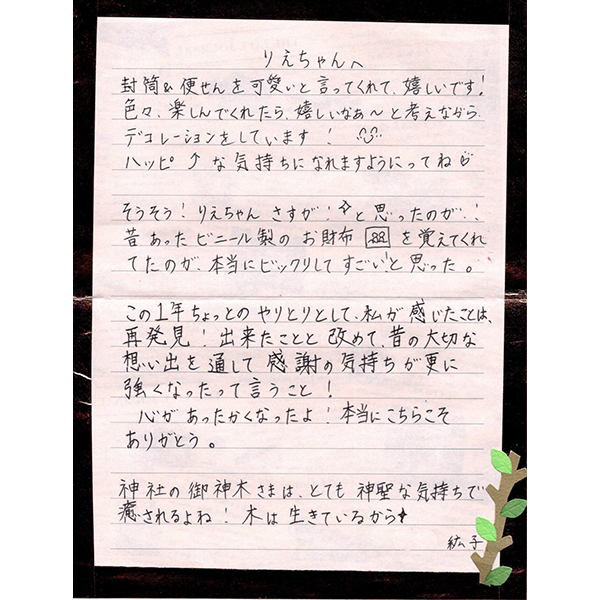 りえちゃんへ
封筒&便せんを可愛いと言ってくれて、嬉しいです!
色々、楽しんでくれたら、嬉しいなあ〜と考えながら
デコレーションをしています!
ハッピ↑な気持ちになれますようにってね
そうそう!りえちゃんさすが!と思ったのが、!
昔あったビニール製のお財布を覚えてくれ
てたのが、本当にビックリしてすごい!と思った。
この1年ちょっとのやりとりとして、私が感じたことは、
再発見!出来たことと改めて、昔の大切な
想い出を通して感謝の気持ちが更に
強くなったって言うこと!
心があったかくなったよ!本当にこちらこそ
ありがとう。
神社の御神木さまは、とても神聖な気持ちで
癒されるよね!木は生きているから
紘子